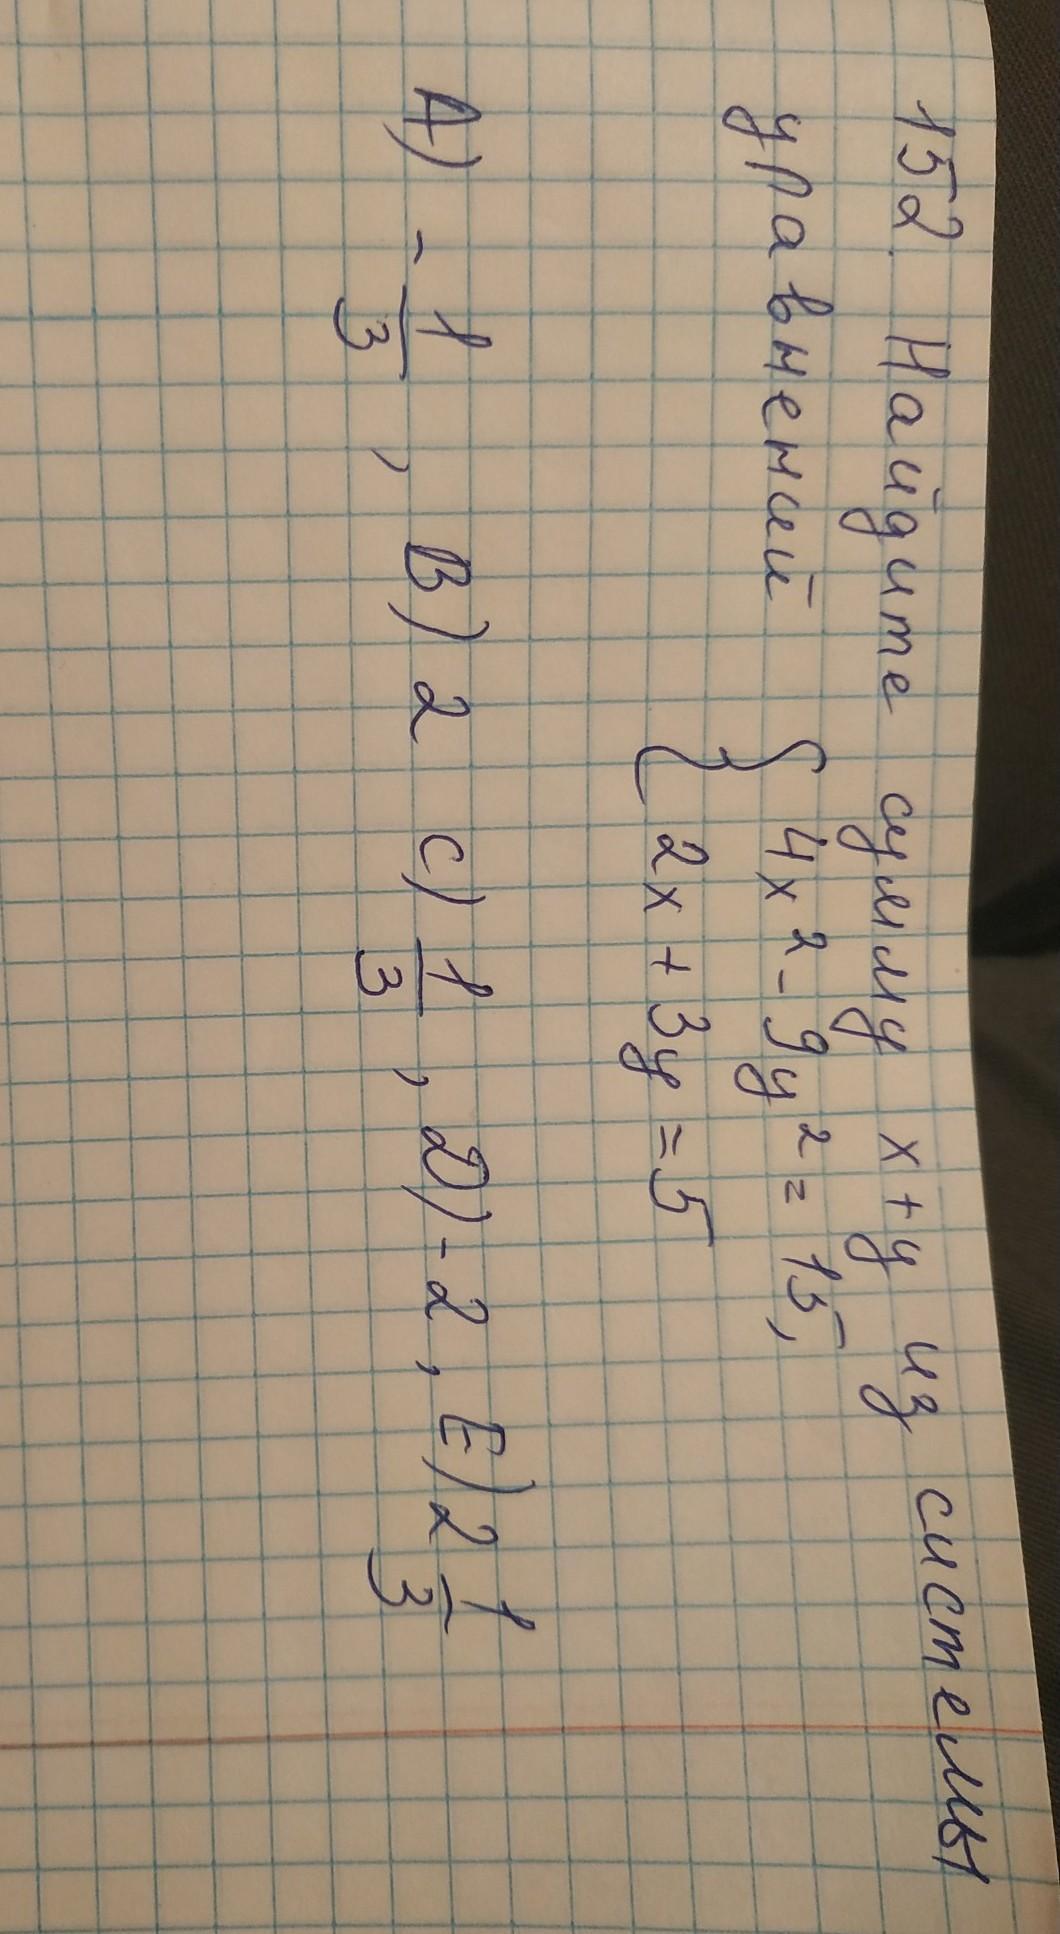 152. Найдите сумму x+y из системы
уравнений { 4x² - 9y² = 15,
2x + 3y = 5
A) - 1/3, B) 2 C) 1/3, D) -2, E) 2 1/3